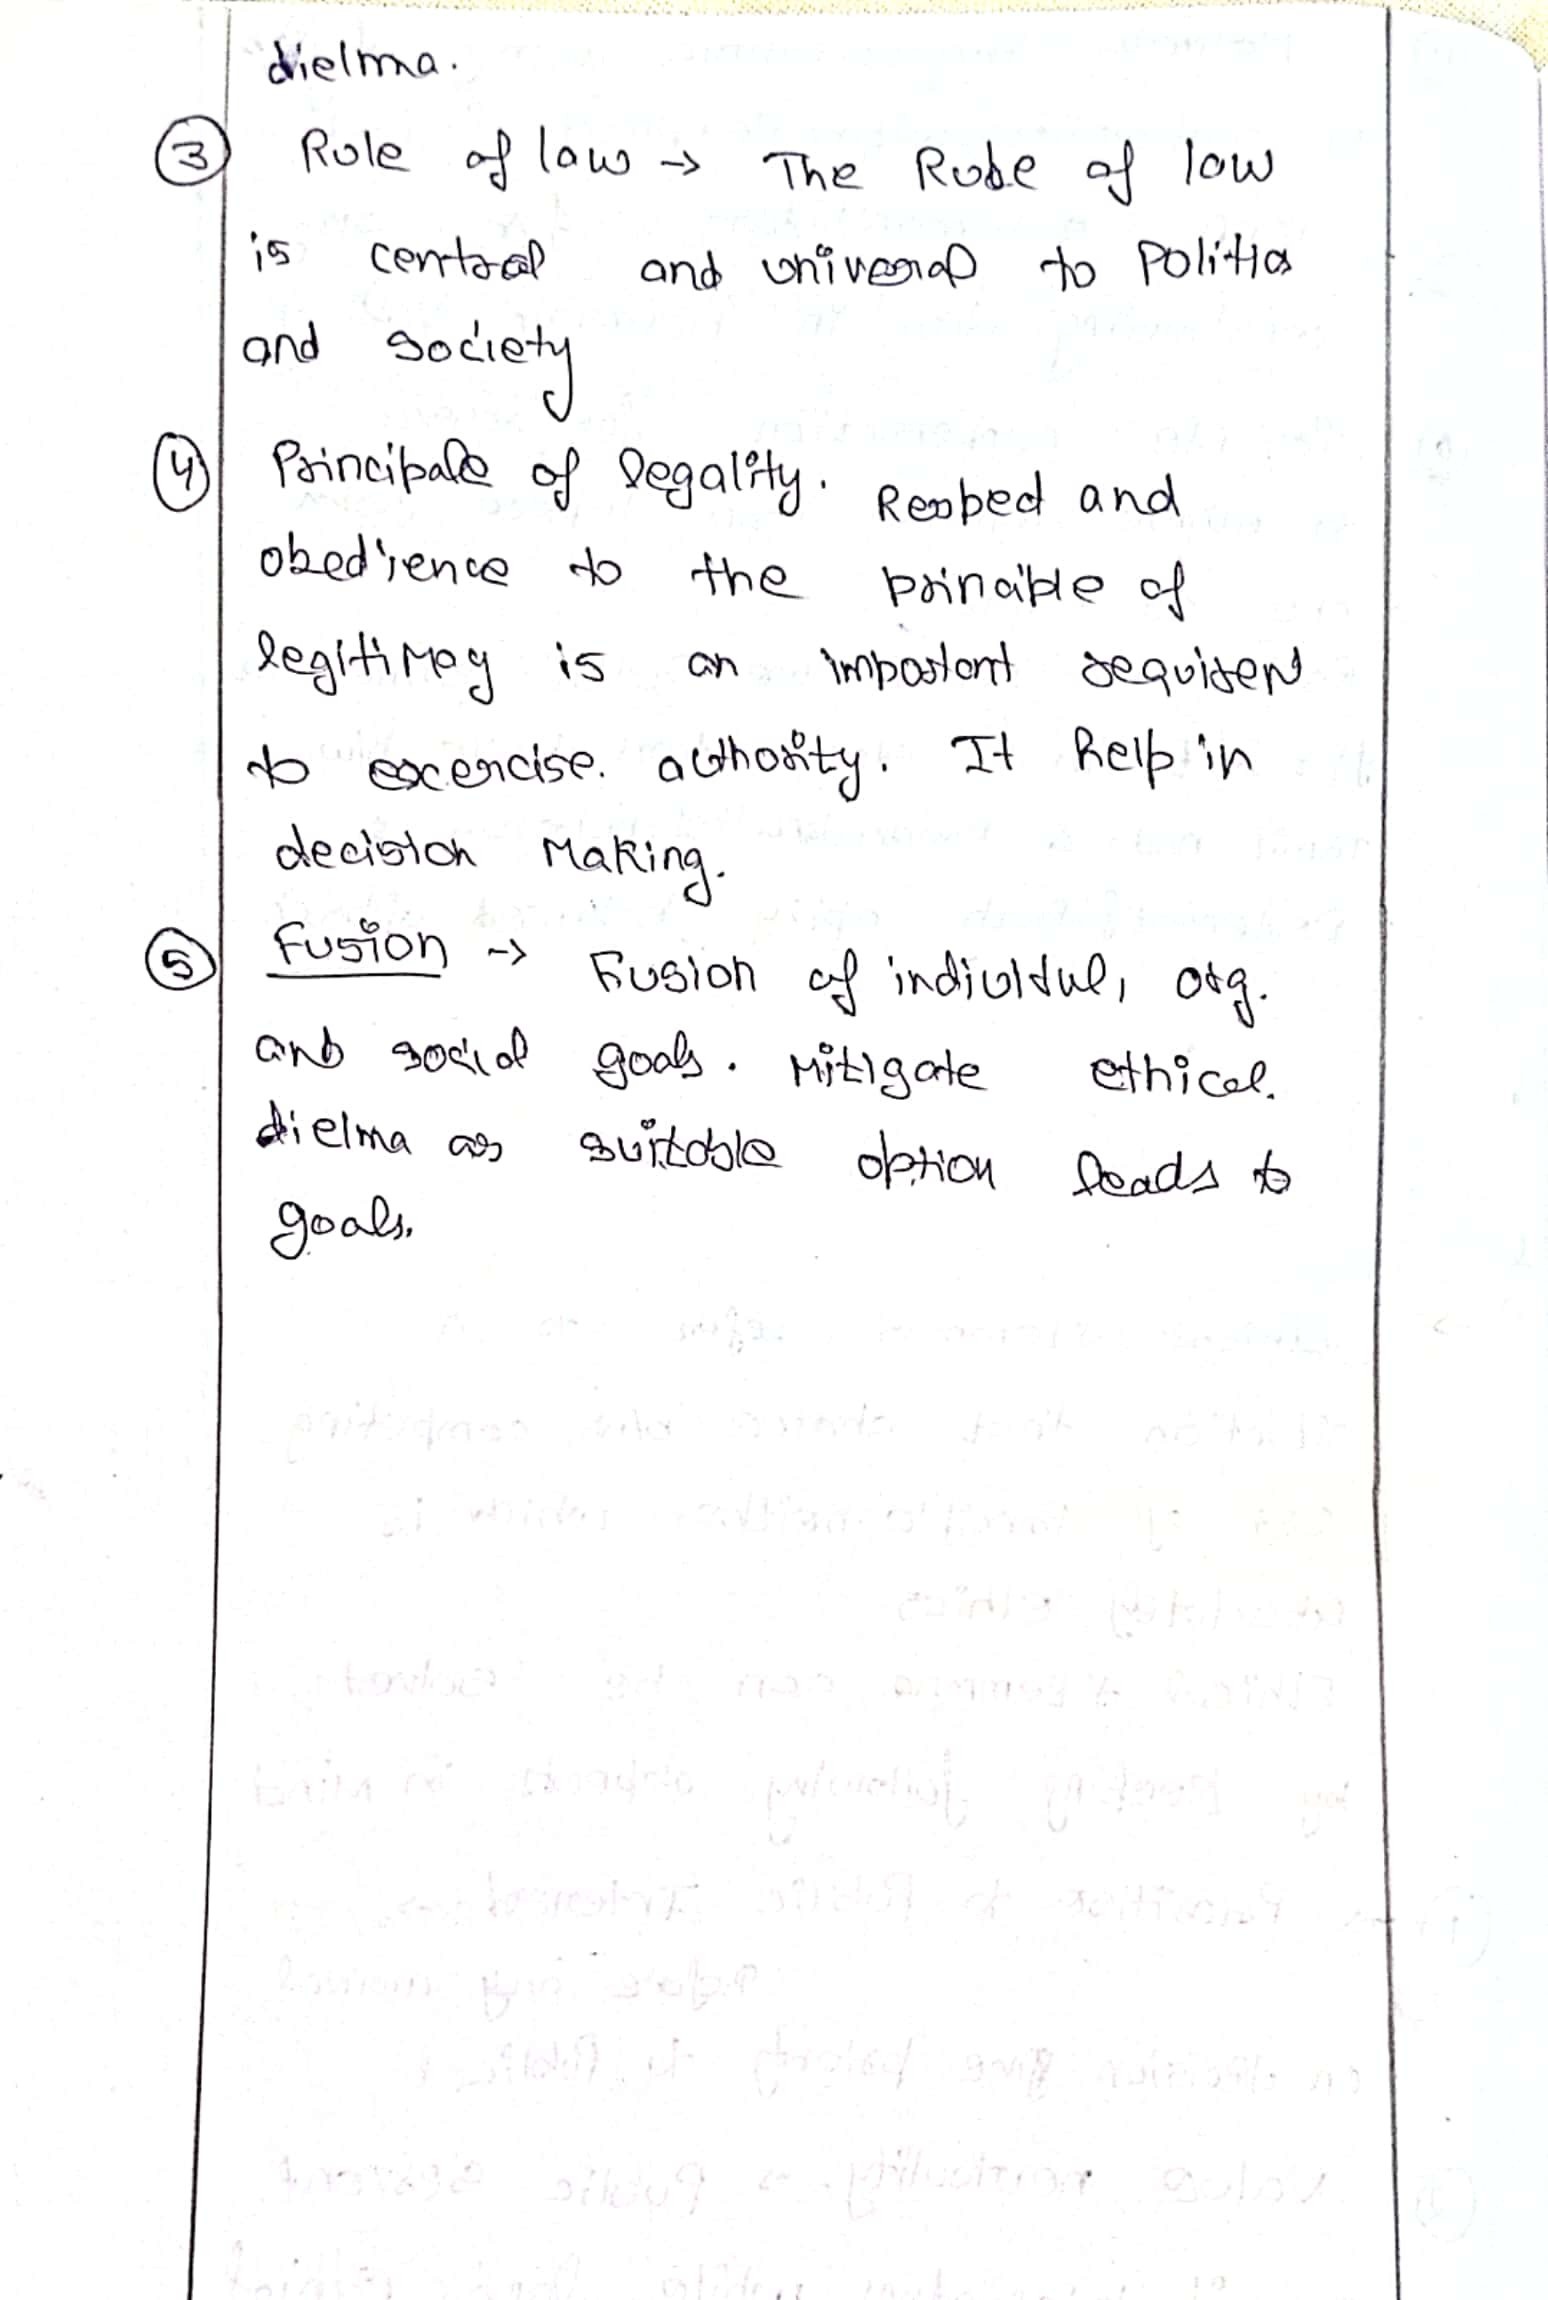 dielma.
③ Rule of law → The Rule of law
is central and universal to Politics
and society
④ Principale of legality. Respect and
obedience to the principle of
legitimacy is an important
to excercise. authority. It help in
decision Making.
⑤ Fusion → Fusion of individul, org.
and social goals. Mitigate ethical.
dielma as suitable option leads to
goals.